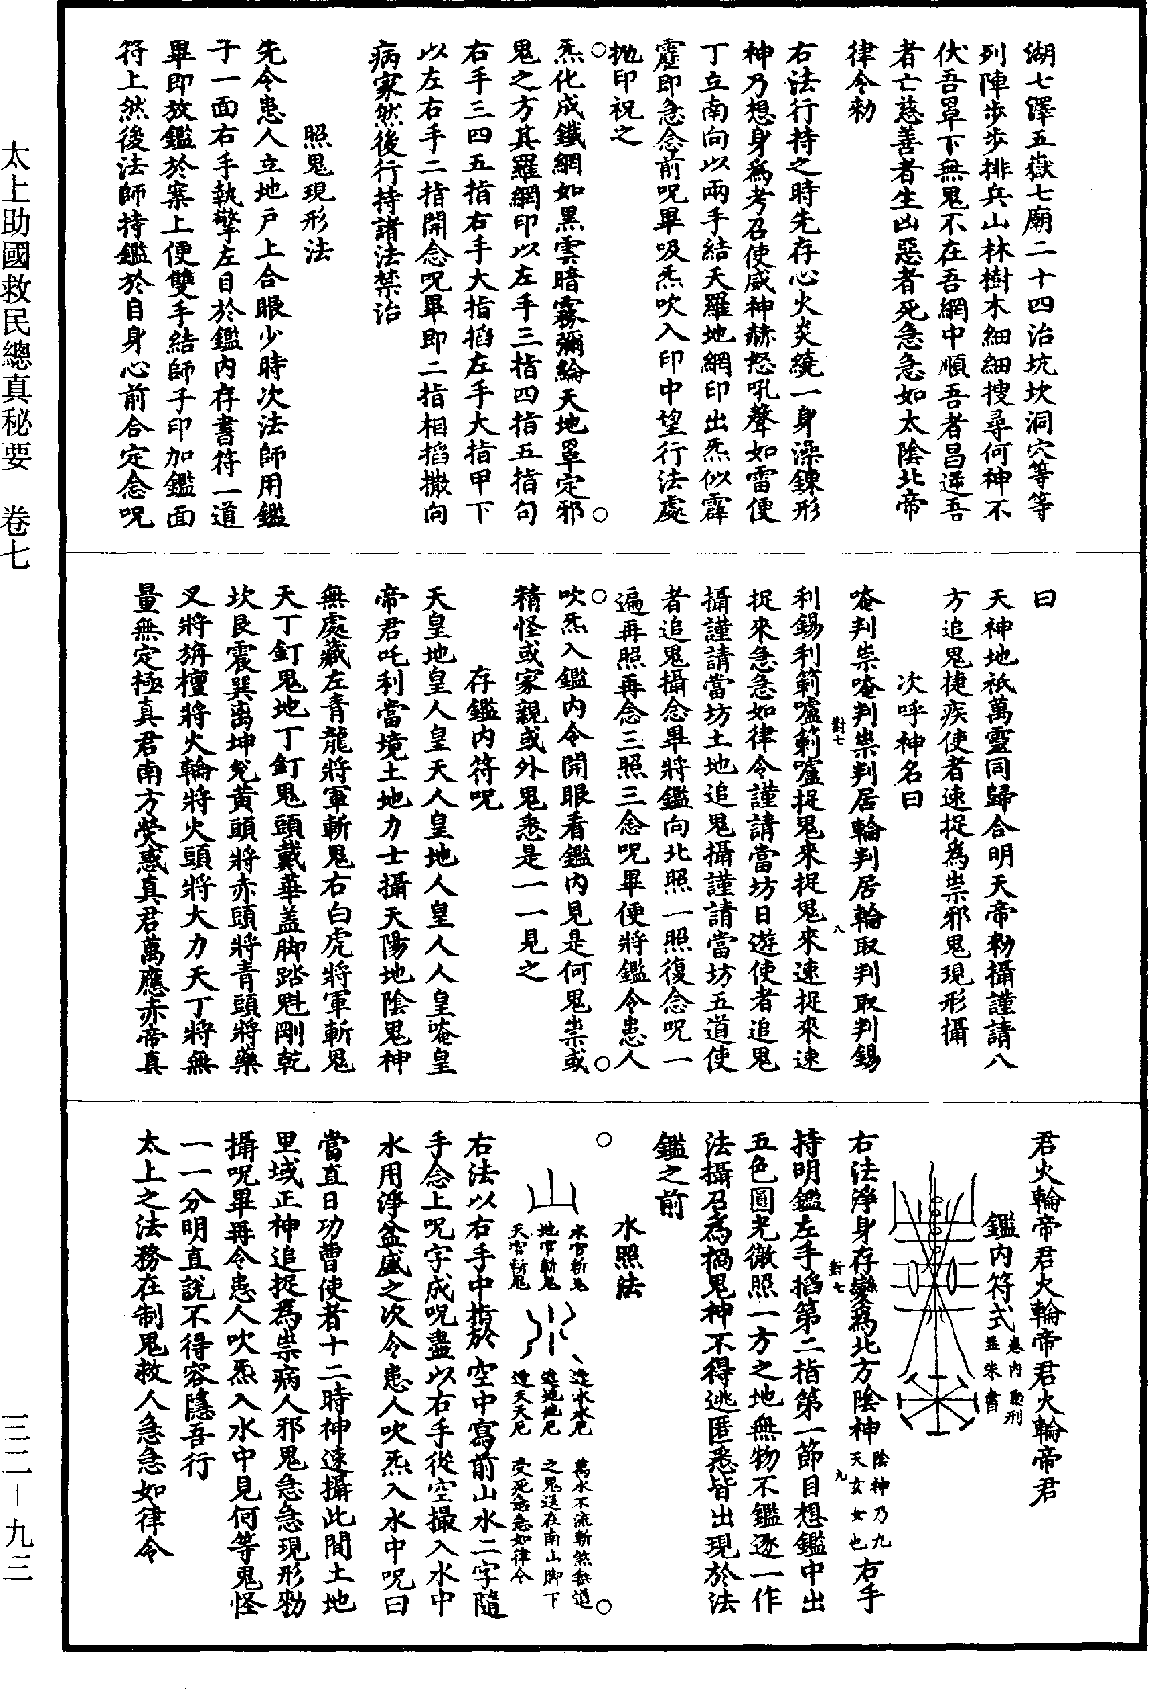 湖七澤五嶽七廟二十四治坑坎洞穴等等
列陣步步排兵山林樹木細細搜尋何神不
伏吾罩下無鬼不在吾網中順吾者昌逆吾
者亡慈善者生凶惡者死急急如太陰北帝
律令勑
右法行持之時先存心火炎繞一身澡鍊形
神乃想身為考召使威神赫怒吼聲如雷便
丁立南向以兩手結天羅地網印出炁似霹
靂即急念前呪畢吸炁吹入印中望行法處
拋印祝之
炁化成鐵網如黑雲暗霧彌綸天地罩定邪
鬼之方其羅網印以左手三指四指五指句
右手三四五指右手大指搯左手大指甲下
以左右手二指開念呪畢即二指相搯撒向
病家然後行持諸法禁治
照鬼現形法
先令患人立地戶上合眼少時次法師用鑑
子一面右手執擎左目於鑑內存書符一道
畢即放鑑於案上便雙手結師子印加鑑面
符上然後法師持鑑於自身心前合定念呪
曰
天神地祇萬靈同歸合明天帝勑攝謹請八
方追鬼捷疾使者速捉為祟邪鬼現形攝
次呼神名曰
唵判祟唵判祟判居輪判居輪取判取判錫
利錫利範嚧範嚧捉鬼來捉鬼來速捉來速
對七
八
捉來急急如律令謹請當坊日遊使者追鬼
攝謹請當坊土地追鬼攝謹請當坊五道使
者追鬼攝念畢將鑑向北照一照復念呪一
遍再照再念三照三念呪畢便將鑑令患人
吹炁入鑑內令開眼看鑑內見是何鬼祟或
精怪或家親或外鬼悉是一一見之
存鑑內符呪
天皇地皇人皇天人皇地人皇人人皇唵皇
帝君吒利當境土地力士攝天陽地陰鬼神
無處藏左青龍將軍斬鬼右白虎將軍斬鬼
天丁釘鬼地丁釘鬼頭戴華蓋脚踏魁剛乾
坎艮震巽离坤兌黃頭將赤頭將青頭將藥
叉將旃檀將火輪將火頭將大力天丁將無
量無定極真君南方熒惑真君萬應赤帝真
君火輪帝君火輪帝君火輪帝君
鑑內符式
卷內
並朱書
右法淨身存變為北方陰神陰神乃九天玄女也右手
對七
九
持明鑑左手搯第二指第一節目想鑑中出
五色圓光徹照一方之地無物不鑑逐一作
法攝召為禍鬼神不得逃匿悉皆出現於法
鑑之前
水照法
水官斬鬼
地官斬鬼
天官斬鬼
逆水水死
逆地地死
逆天天死
萬水不流斬煞
之鬼送在南山脚下
受死急急如律令
右法以右手中指於空中寫前山水二字隨
手念上呪字成呪盡以右手從空撮入水中
水用淨盆盛之次令患人吹炁入水中呪曰
當直日功曹使者十二時神速攝此間土地
里域正神追捉為祟病人邪鬼急急現形勑
攝呪畢再令患人吹炁入水中見何等鬼怪
一一分明直說不得容隱吾行
太上之法務在制鬼救人急急如律令
太上助國救民總真秘要 卷七
三二－九三